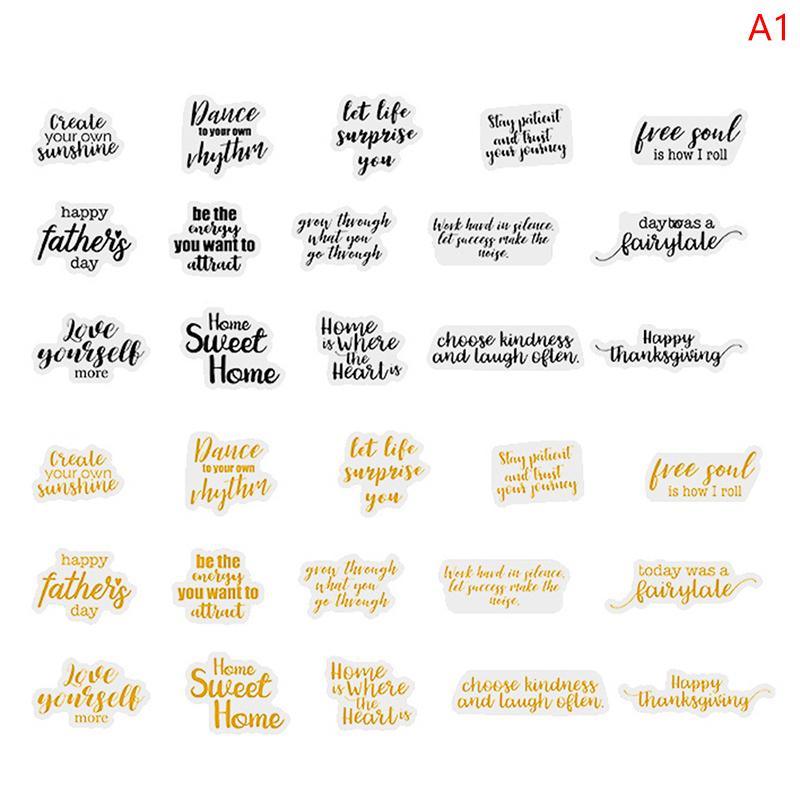 A1
Create
your own
sunshine
Dance
to your own
rhythm
let life
surprise
you
Stay patient
and trust
your journey
free soul
is how I roll
happy
father's
day
be the
energy
you want to
attract
grow through
what you
go through
Work hard in silence,
let success make the
noise.
daytowas a
fairytale
Love
yourself
more
Home
Sweet
Home
Home
is Where
the
Heart is
choose kindness
and laugh often.
Happy
thanksgiving
Create
your own
sunshine
Dance
to your own
rhythm
let life
surprise
you
Stay patient
and trust
your journey
free soul
is how I roll
happy
father's
day
be the
energy
you want to
attract
grow through
what you
go through
Work hard in silence,
let success make the
noise.
today was a
fairytale
Love
yourself
more
Home
Sweet
Home
Home
is Where
the
Heart is
choose kindness
and laugh often.
Happy
thanksgiving